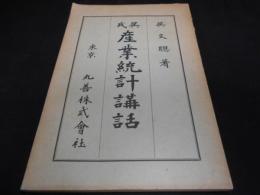 吳文聰著
吳氏
產業統計講話
東京
丸善株式會社